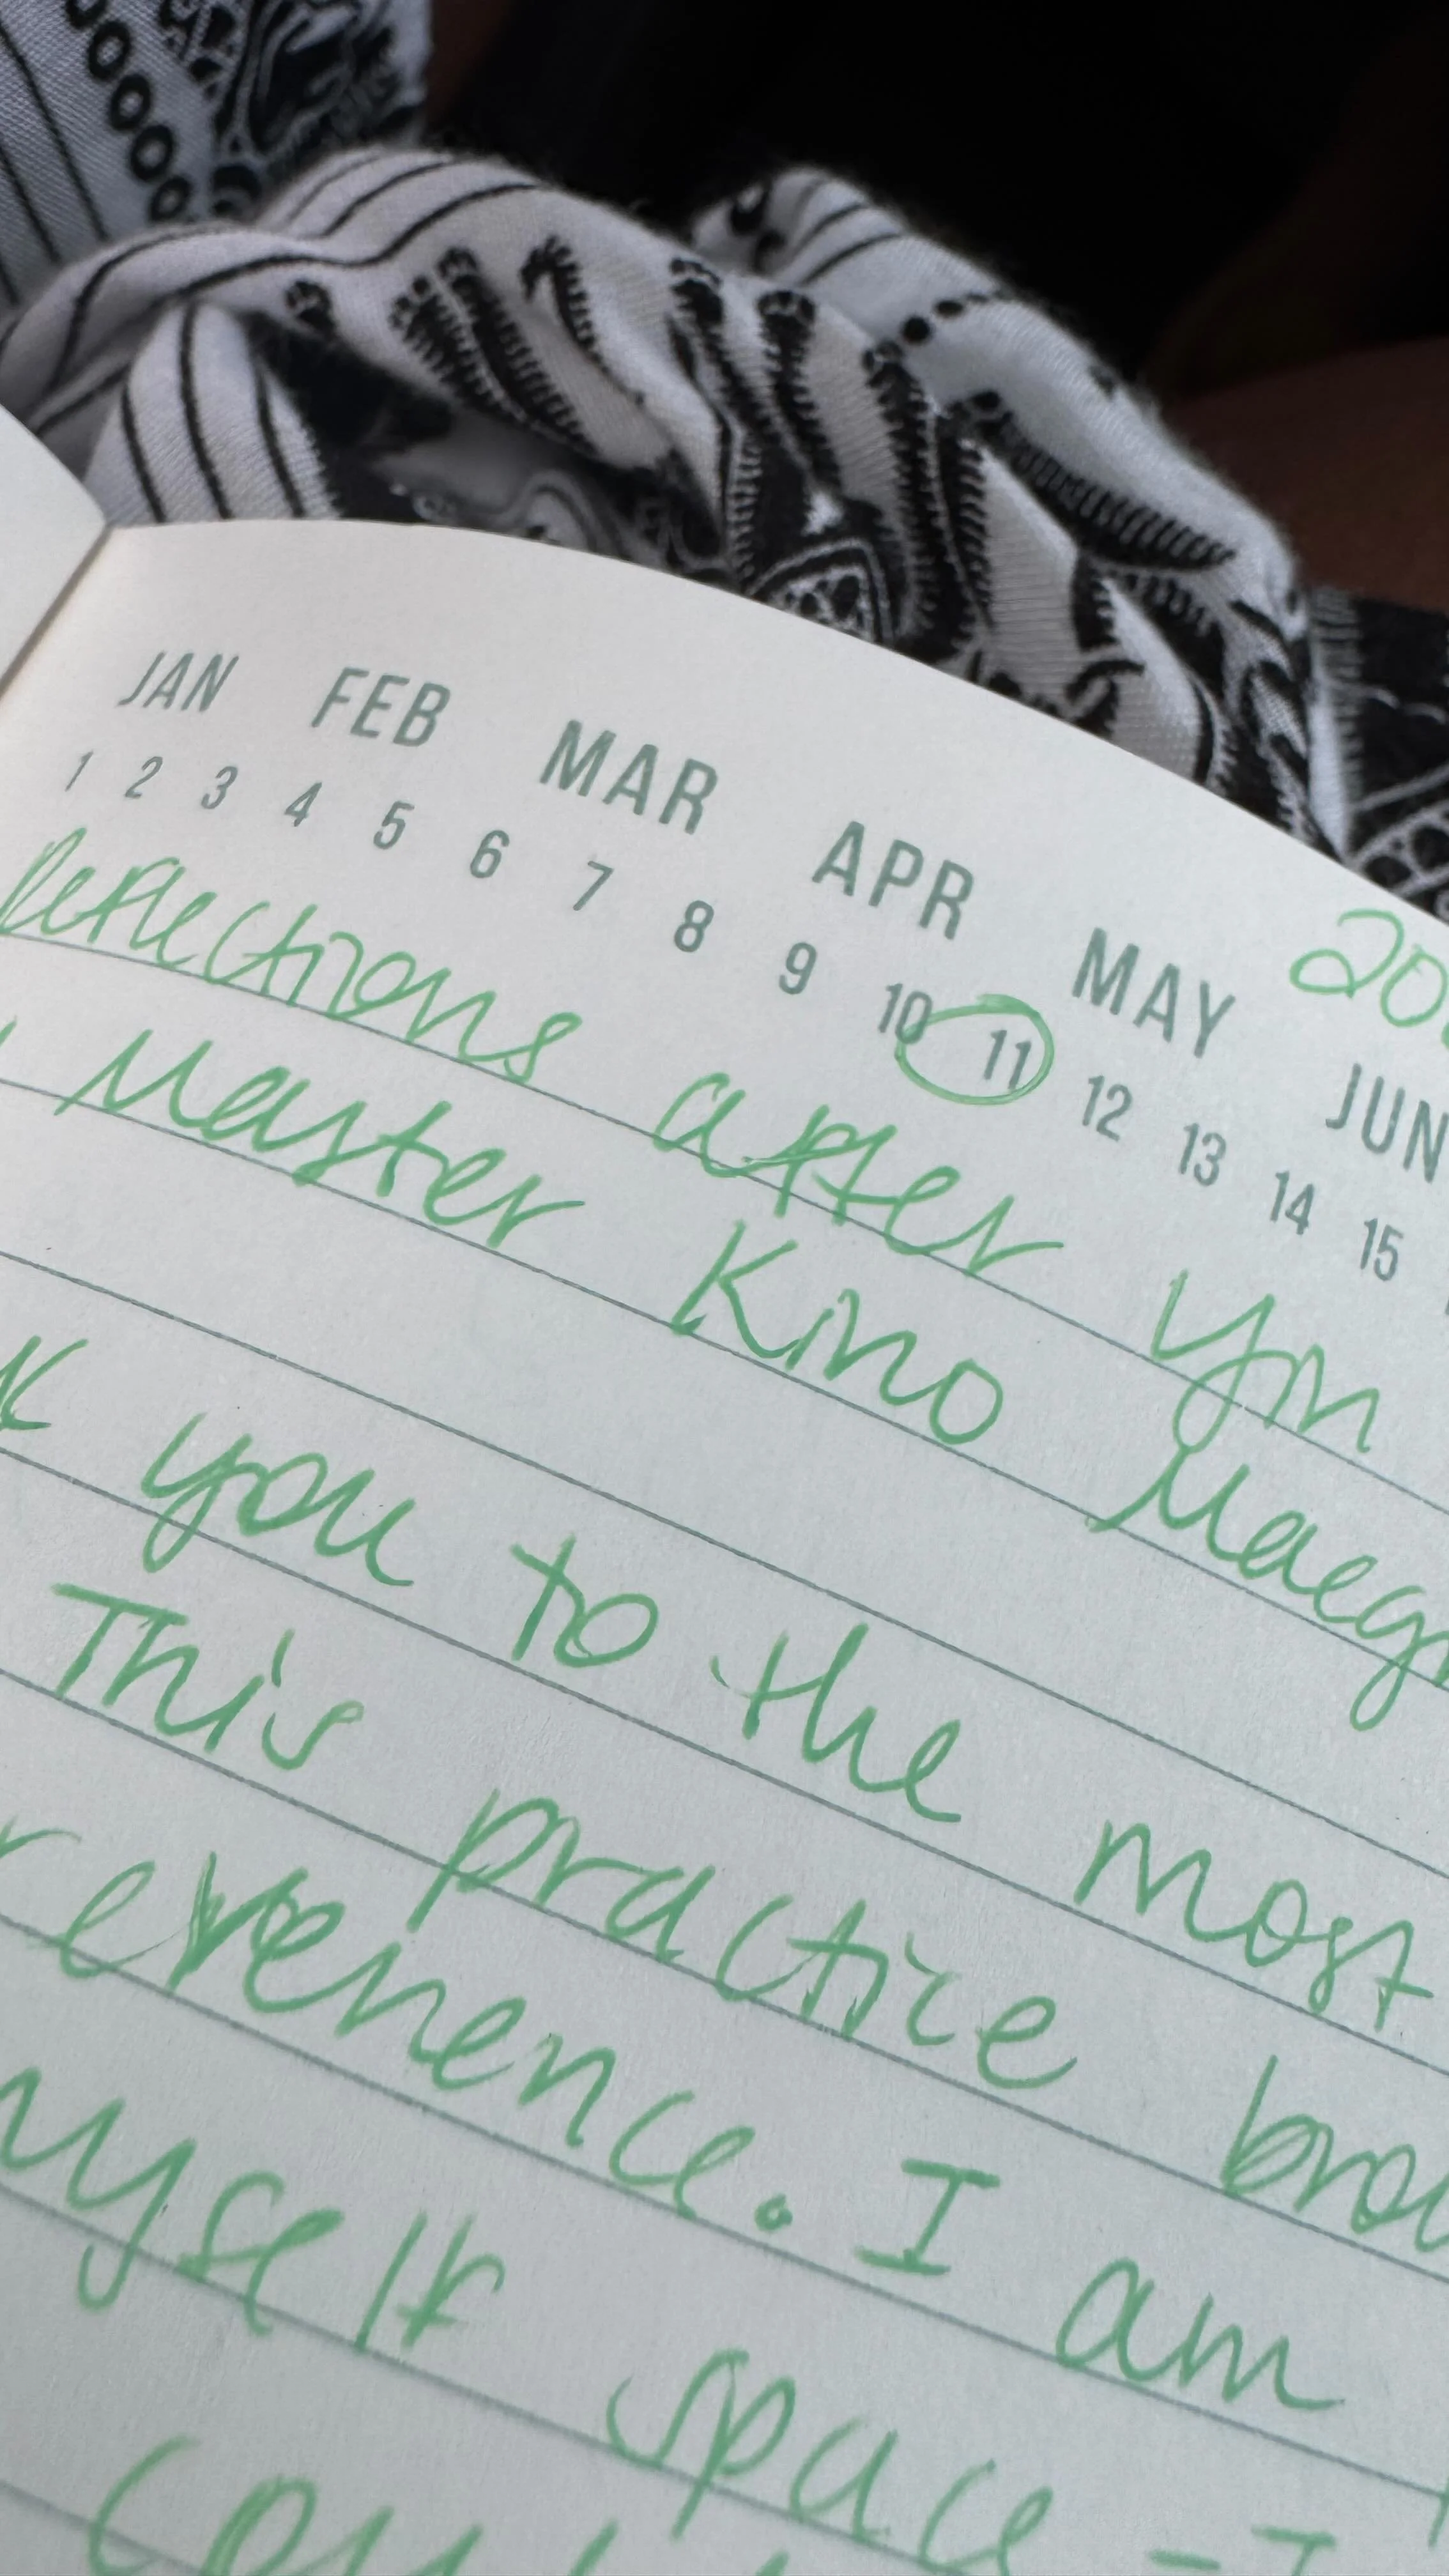 JAN FEB MAR APR MAY JUN
1 2 3 4 5 6 7 8 9 10 11 12 13 14 15
20
Reflections after yin
Master Kino Maegr
you to the most
This practice
reverence. I am
myself space - I